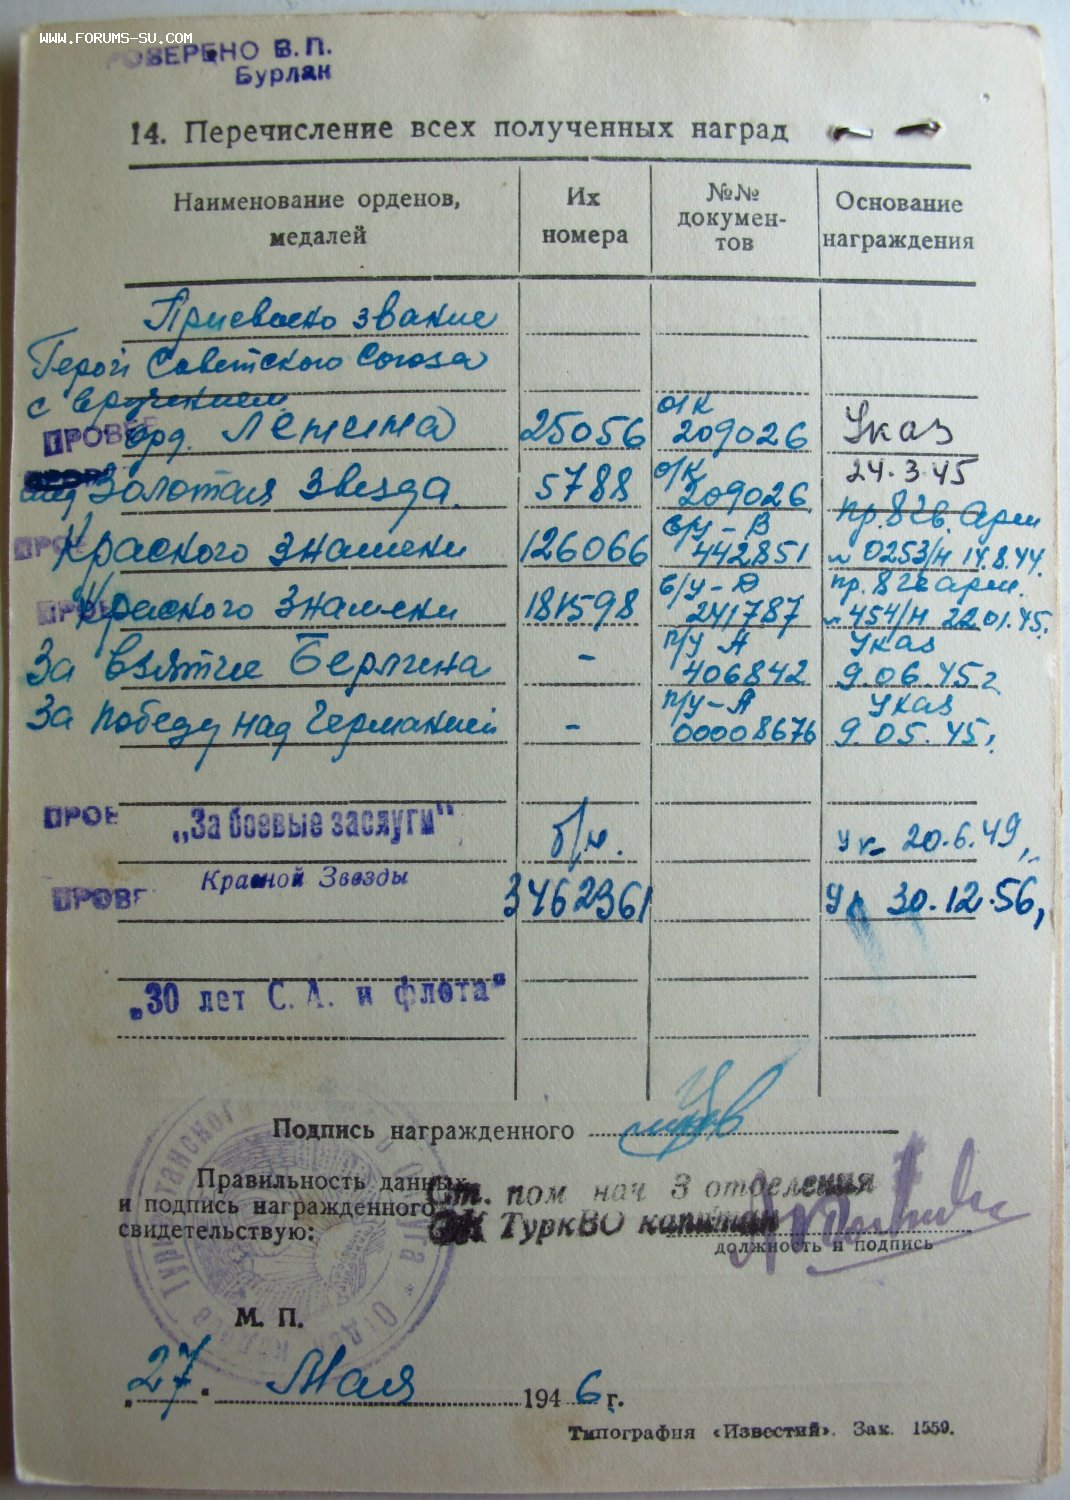 WWW.FORUMS-SU.COM
РОВЕРЕНО В.П.
Бурлак
14. Перечисление всех полученных наград
Наименование орденов, медалей
Их номера
№№ документов
Основание награждения
Присвоено звание
Герой Советского Союза
с вручением
ПРОВЕ орд. Ленина 25056 о/к 209026 Указ 24.3.45
Золотая Звезда 5788 о/к 209026
ПРОВ Красного знамени 126066 в/ч-В 442851 пр. 8 гв. арм 0253/н 14.8.44.
ПРОВ Красного знамени 181598 б/у-Д 241787 пр. 8 гв арм. 454/н 22.01.45.
За взятие Берлина - п/у А 406842 Указ 9.06.45г
За победу над Германией - п/у-А 00008676 Указ 9.05.45.
ПРОВ „За боевые заслуги" б/н. Ук 20.6.49,
ПРОВЕ Красной Звезды 3462361 Ук 30.12.56,
„30 лет С. А. и флота"
Подпись награжденного
Правильность данных
и подпись награжденного
свидетельствую:
Ст. пом нач 3 отделения
ОК ТуркВО капитан
должность и подпись
М. П.
„27." Мая 1946 г.
Типография «Известий». Зак. 1559.